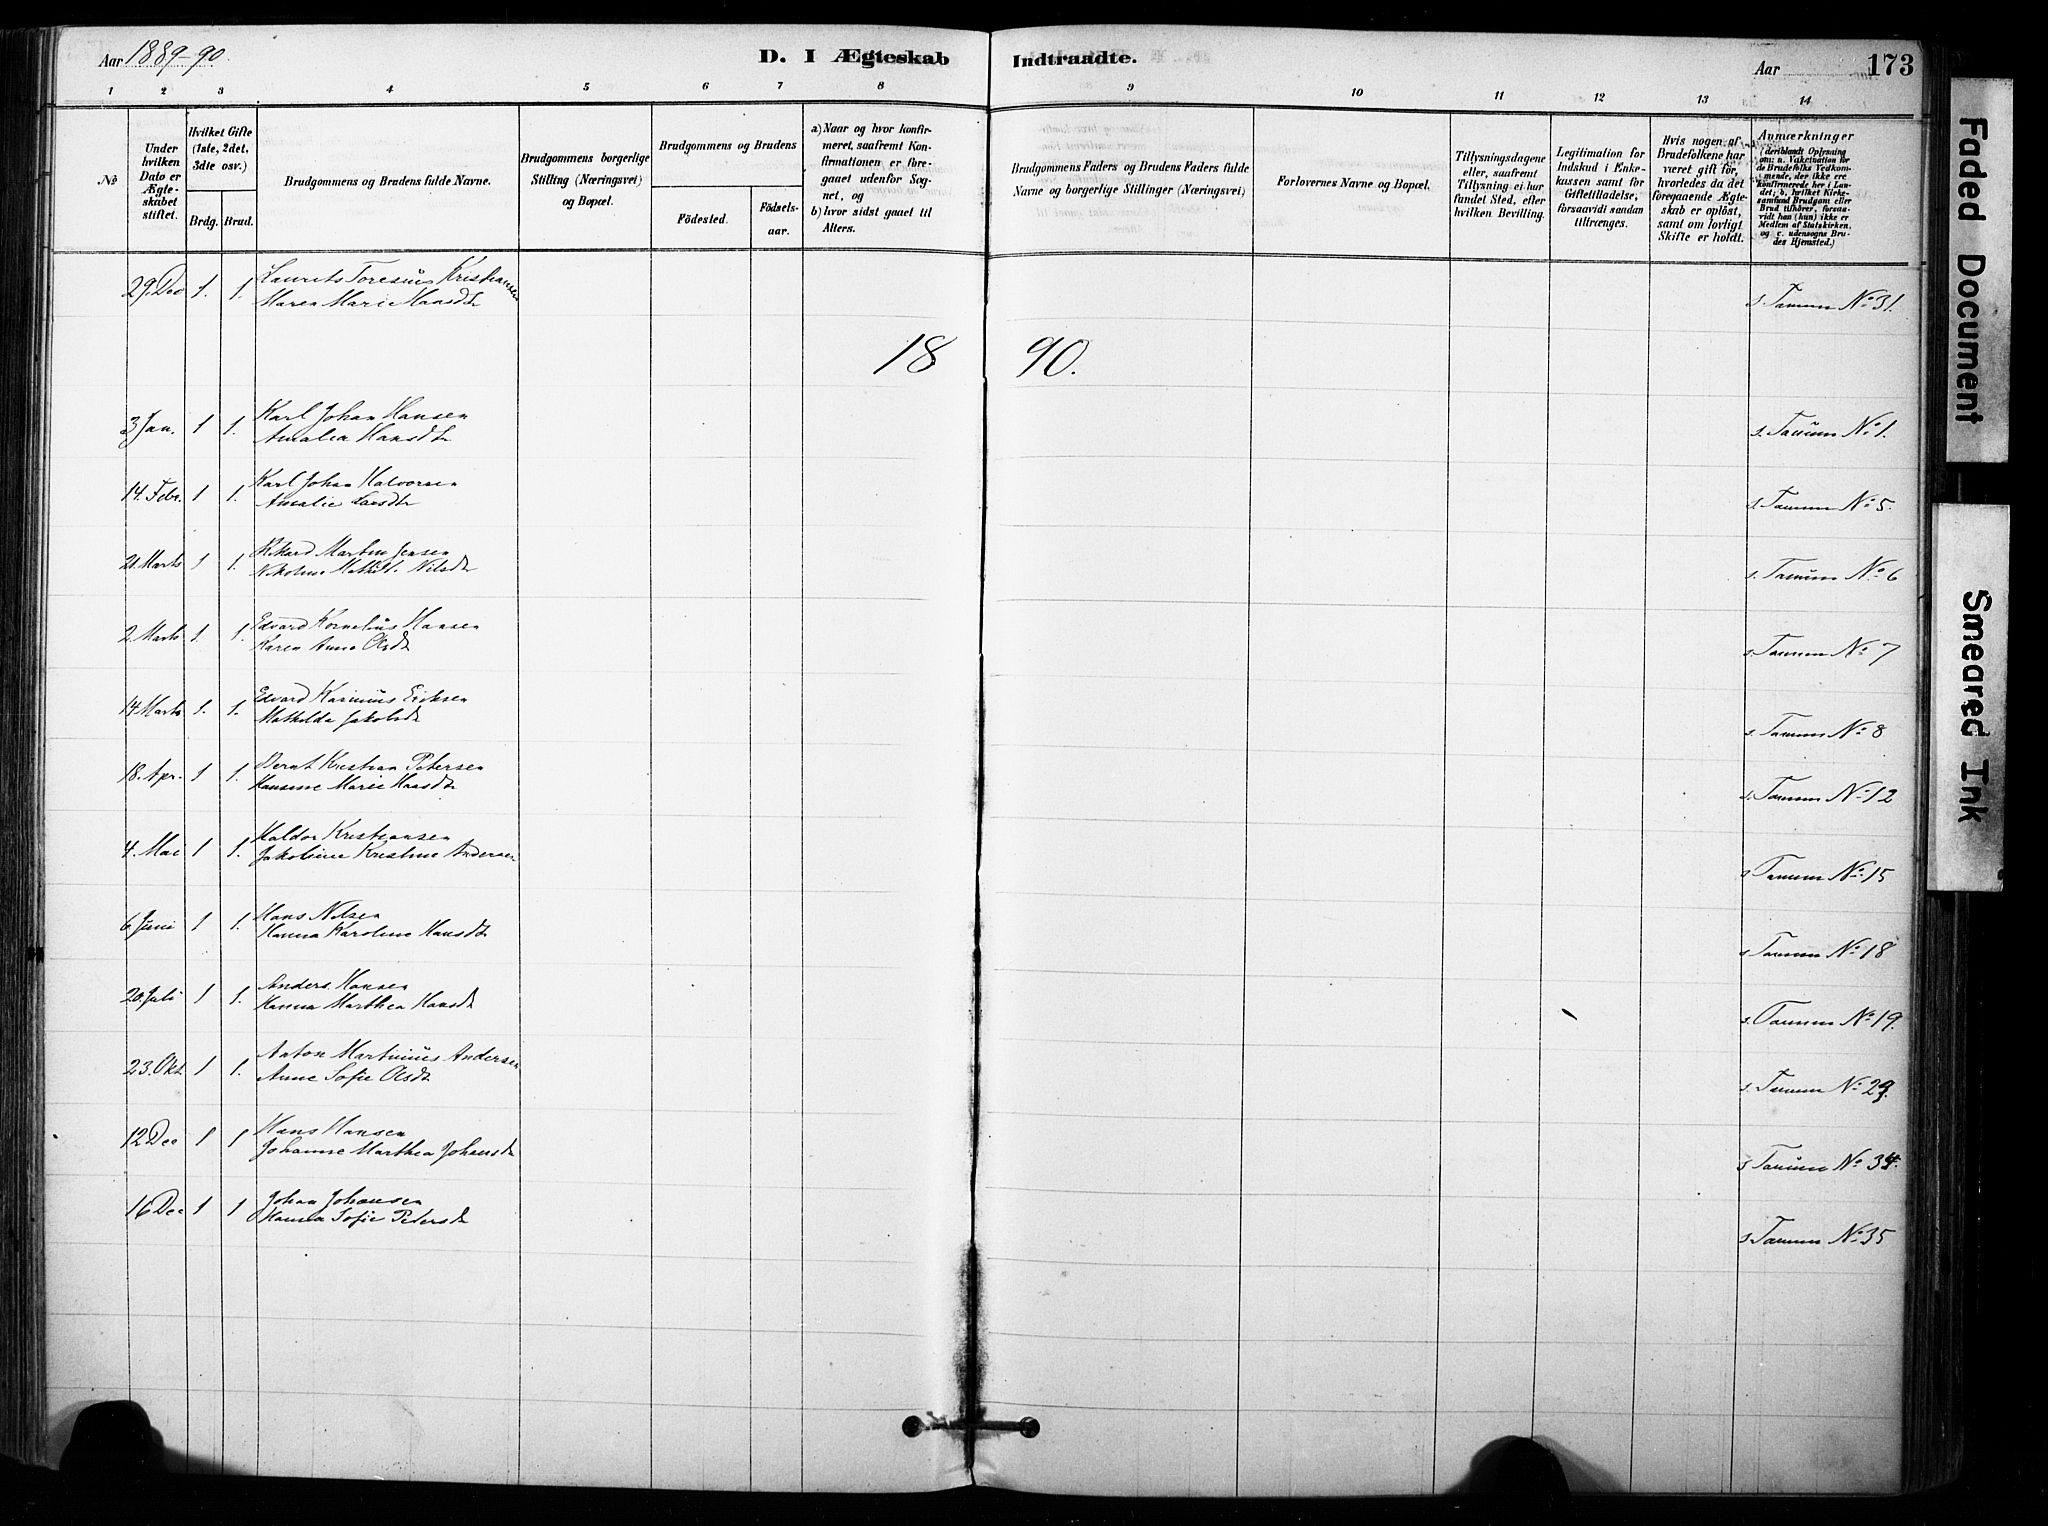 Aar 1889-90.
D. I Ægteskab Indtraadte.
Aar
173
1 2 3 4 5 6 7 8 9 10 11 12 13 14
№
Under hvilken Dato er Ægteskabet stiftet.
Hvilket Gifte (1ste, 2det, 3die osv.)
Brdg. Brud.
Brudgommens og Brudens fulde Navne.
Brudgommens borgerlige Stilling (Næringsvei) og Bopæl.
Brudgommens og Brudens
Födested.
Födselsaar.
a) Naar og hvor konfirmeret, saafremt Konfirmationen er foregaaet udenfor Sognet, og
b) hvor sidst gaaet til Alters.
Brudgommens Faders og Brudens Faders fulde Navne og borgerlige Stillinger (Næringsvei)
Forlovernes Navne og Bopæl.
Tillysningsdagene eller, saafremt Tillysning ei har fundet Sted, efter hvilken Bevilling.
Legitimation for Indskud i Enkekassen samt for Giftetilladelse, forsaavidt saadan tiltrænges.
Hvis nogen af Brudefolkene har været gift før, hvorledes da det foregaaende Ægteskab er opløst, samt om lovligt Skifte er holdt.
Anmærkninger (deriblandt Oplysning om: a. Vakcination for de Brudefolks Vedkommende, der ikke ere konfirmerede her i Landet; b. hvilket Kirkesamfund Brudgom eller Brud tilhörer, forsaavidt han (hun) ikke er Medlem af Statskirken, og c. udensogns Brudes Hjemsted.)
29. Dec 1. 1. Laurits Toresius Kristiansen
Maren Marie Hansdtr
s. Tanum No 31.
18 90.
3 Jan. 1 1. Karl Johan Hansen
Amalia Hansdtr
s. Tanum No 1.
14. Febr. 1 1. Karl Johan Halvorsen
Amalie Larsdtr
s. Tanum No 5.
Marts 1 1. Rikard Martin Jensen
Nikoline Nilsdtr
s. Tanum No 6
2. Marts 1. 1. Edvard Kornelius Hansen
Karen Anna Olsdtr
s. Tanum No 7
14 Marts 1. 1. Edvard Eriksen
Mathilda Jakobsdtr
s. Tanum No 8
18. Apr. 1 1. Bernt Kristian Petersen
Hansine Marie Hansdtr
s. Tanum No 12
4. Mai 1 1. Haldor Kristiansen
Jakobine Kristine Andersen
s Tanum No 15
6 Juni 1 1. Hans Nilsen
Hanna Karoline Hansdtr
s Tanum No 18
20. Juli 1 1. Anders Hansen
Hanna Marthea Hansdtr
s. Tanum No 19.
23. Okt. 1 1. Anton Martinius Andersen
Anne Sofie Olsdtr
s. Tanum No 29.
12 Dec 1 1 Hans Hansen
Johanne Marthea Johansdtr
s Tanum No 34.
16 Dec 1 1 Johan Johansen
Hanna Sofie Petersdtr
s. Tanum No 35
Faded Document
Smeared Ink